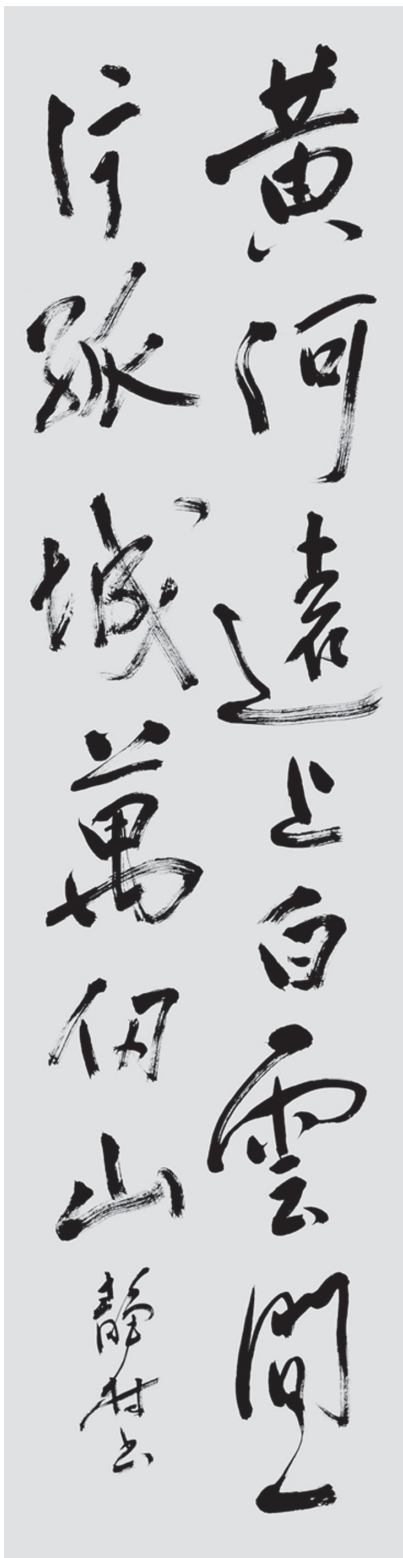 黄河遠上白雲間一
片孤城萬仞山
靜村书